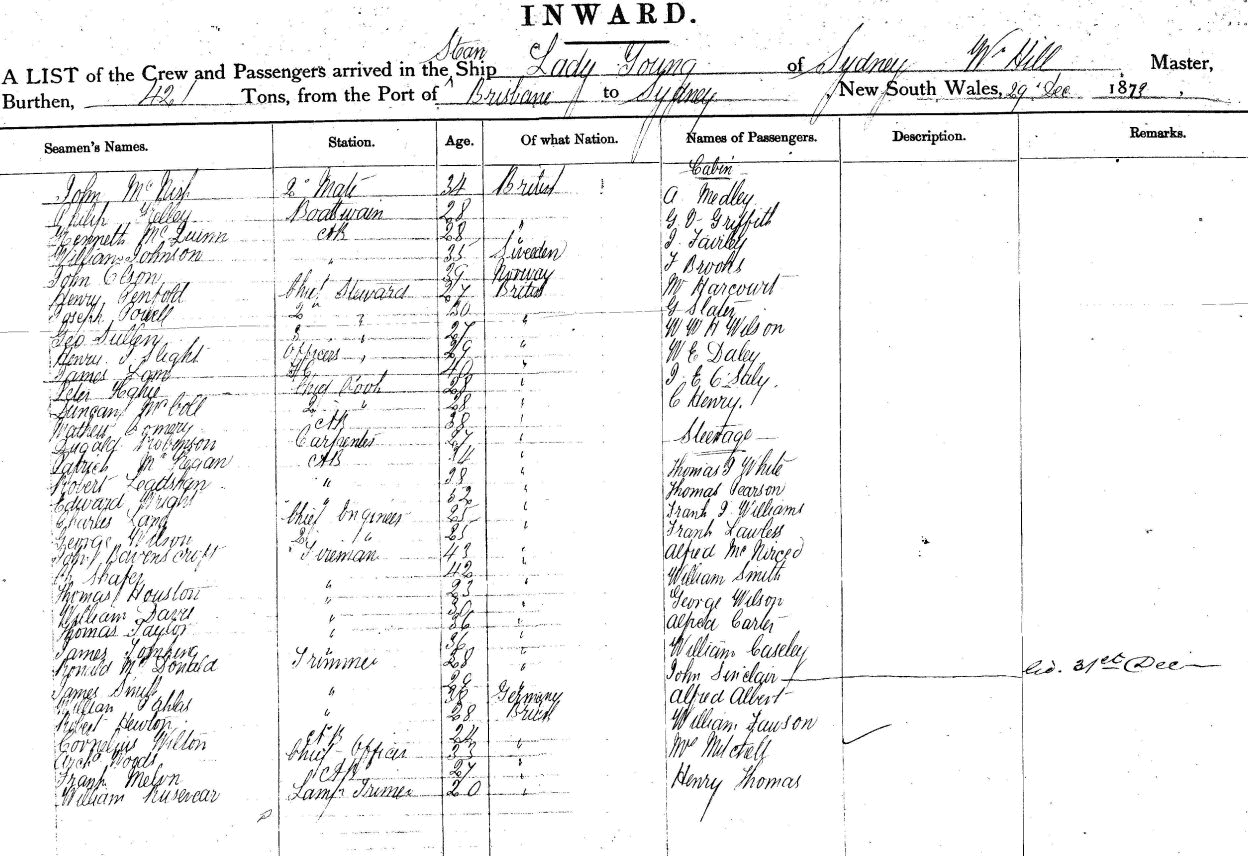 INWARD.
Steam
A LIST of the Crew and Passengers arrived in the Ship Lady Young of Sydney Wm Hill Master,
Burthen, 421 Tons, from the Port of Brisbane to Sydney, New South Wales, 29 Dec 1879,
Seamen's Names. Station. Age. Of what Nation. Names of Passengers. Description. Remarks.
Cabin
John 2d Mate 34 British A Medley
Philip Kelley Boatswain 28 " G D Griffith
Kenneth McQuinn AB 28 " Fairley
William Johnson " 35 Sweden F Brooks
John Olson 39 Norway Mr Harcourt
Henry Penfold Chief Steward 27 British G Slater
Joseph Powell 2d " 30 " W W H Wilson
Geo Sullen 3 " 27 "
Henry J Slight Officers " 29 " W E Daley
James 40 " J E C Saly.
Peter Chief Cook 28 " C Henry.
Duncan McColl 2 " 28 "
Mathew Comery AB 38 " Steerage
Dugald Robinson Carpenter 27 "
Patrick McKegan AB 24 " Thomas J White
Robert " 28 " Thomas Pearson
Edward Wright " 32 " Frank J Williams
Charles Lang Chief Engineer 25 " Frank Lawless
George Wilson 2 " 25 "
Saml Ravenscroft Fireman 43 " Alfred
Ch Shafer 42 " William Smith
Thomas Houston " 23 " George Wilson
William Davis " 30 " Alfred Carter
Thomas Taylor " 36 "
James " 36 " William Caseley
Ronald McDonald Trimmer 28 " John Sinclair 31st Dec
James Smith " Germany Alfred Albert
William Pahlas " 28 British William Lawson
Robert Newton
Cornelius Wilton AB 24 " Mrs Mitchell
Woods Chief Officer 33 "
Frank Melon AB 27 " Henry Thomas
William Lamp Trimer 20 "